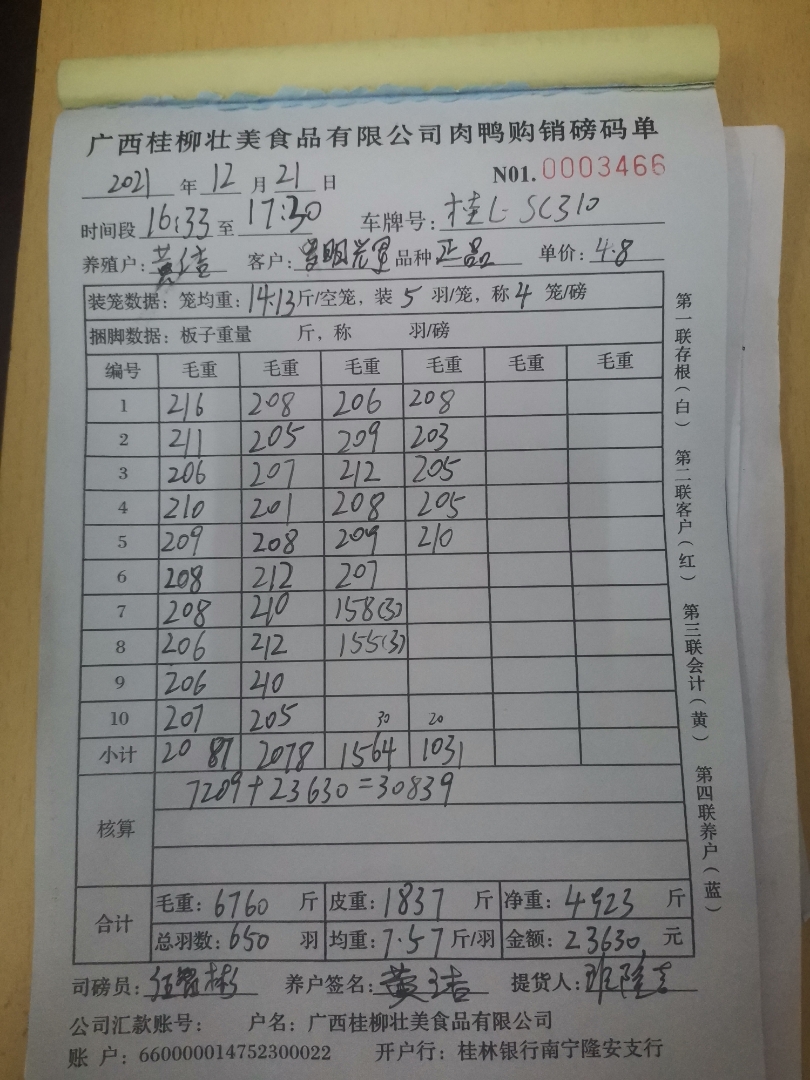 广西桂柳壮美食品有限公司肉鸭购销磅码单
2021 年 12 月 21 日 N01.0003466
时间段 16:33 至 17:30 车牌号: 桂L SC310
养殖户: 客户: 品种 正品 单价: 4.8
装笼数据: 笼均重: 14.13 斤/空笼, 装 5 羽/笼, 称 4 笼/磅
捆脚数据: 板子重量 斤, 称 羽/磅
编号 毛重 毛重 毛重 毛重 毛重 毛重
1 216 208 206 208
2 211 205 209 203
3 206 207 212 205
4 210 201 208 205
5 209 208 209 210
6 208 212 207
7 208 210 158(3)
8 206 212 155(3)
9 206 210
10 207 205 30 20
小计 2087 2078 1564 1031
核算 7209+23630=30839
合计 毛重: 6760 斤 皮重: 1837 斤 净重: 4923 斤
总羽数: 650 羽 均重: 7.57 斤/羽 金额: 23630 元
司磅员: 养户签名: 提货人:
公司汇款账号: 户名: 广西桂柳壮美食品有限公司
账 户: 660000014752300022 开户行: 桂林银行南宁隆安支行
第一联存根(白) 第二联客户(红) 第三联会计(黄) 第四联养户(蓝)